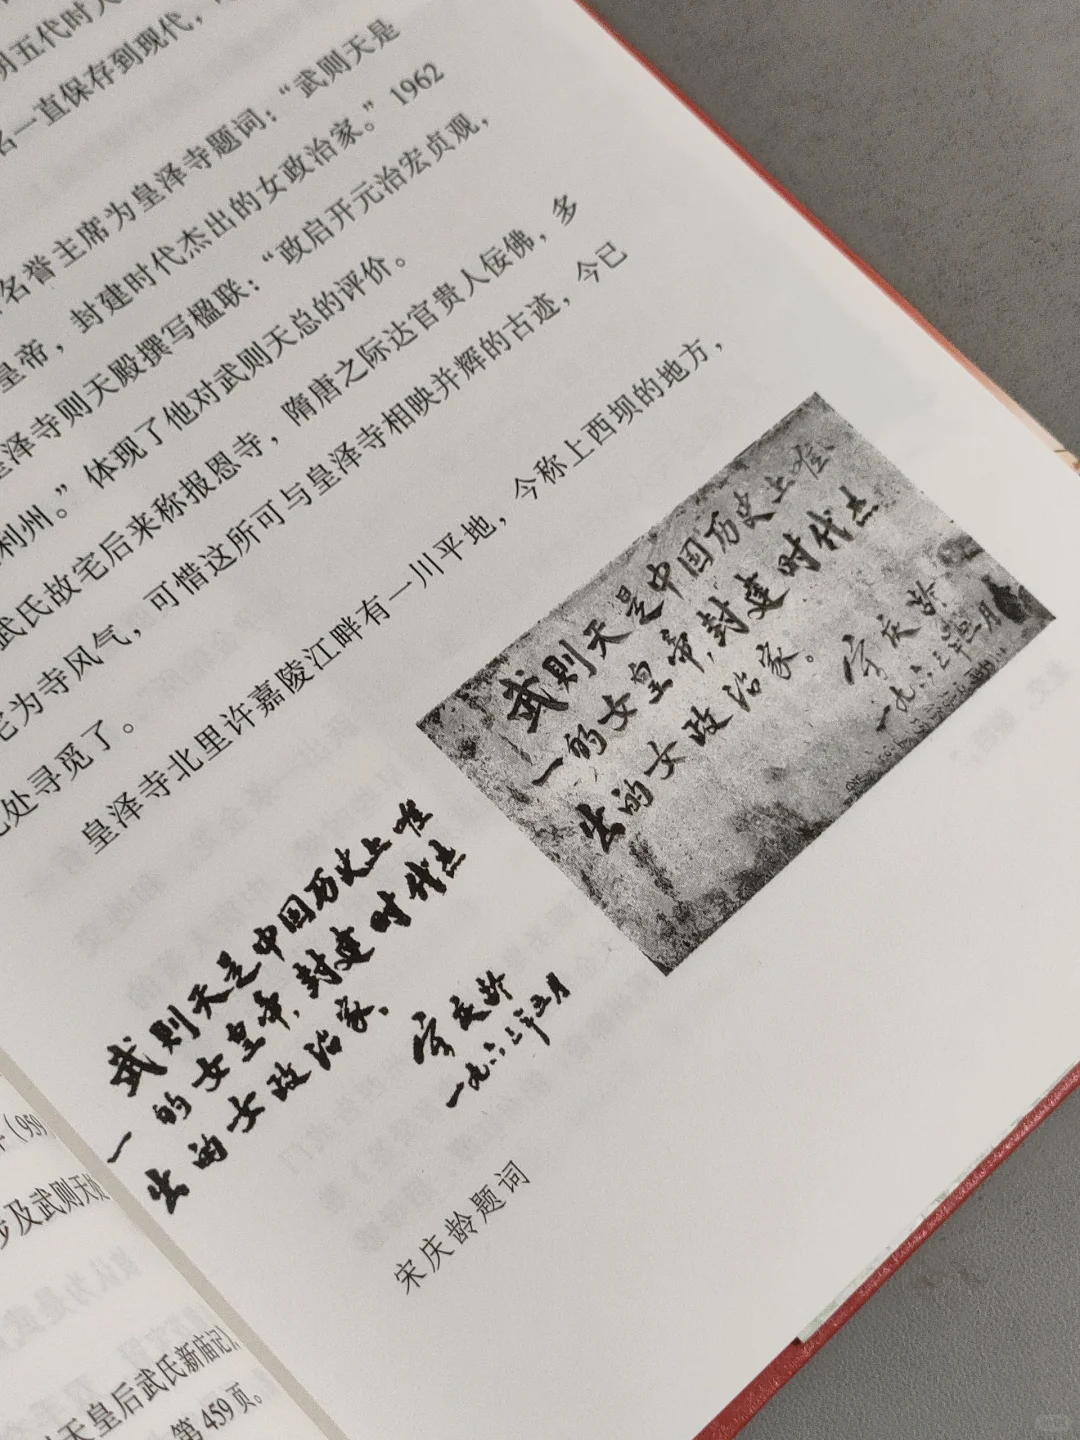 明五代时人
名一直保存到现代，
名誉主席为皇泽寺题词：“武则天是
皇帝，封建时代杰出的女政治家。”1962
皇泽寺则天殿撰写楹联：“政启开元治宏贞观，
利州。”体现了他对武则天总的评价。
武氏故宅后来称报恩寺，隋唐之际达官贵人佞佛，多
宅为寺风气，可惜这所可与皇泽寺相映并辉的古迹，今已
处寻觅了。
皇泽寺北里许嘉陵江畔有一川平地，今称上西坝的地方，
武则天是中国历史上唯
一的女皇帝，封建时代杰
出的女政治家。
宋庆龄
一九六三年五月
武则天是中国历史上唯
一的女皇帝，封建时代杰
出的女政治家。
宋庆龄
一九六三年五月
宋庆龄题词
（959
涉及武则天
天皇后武氏新庙记》
第459页。